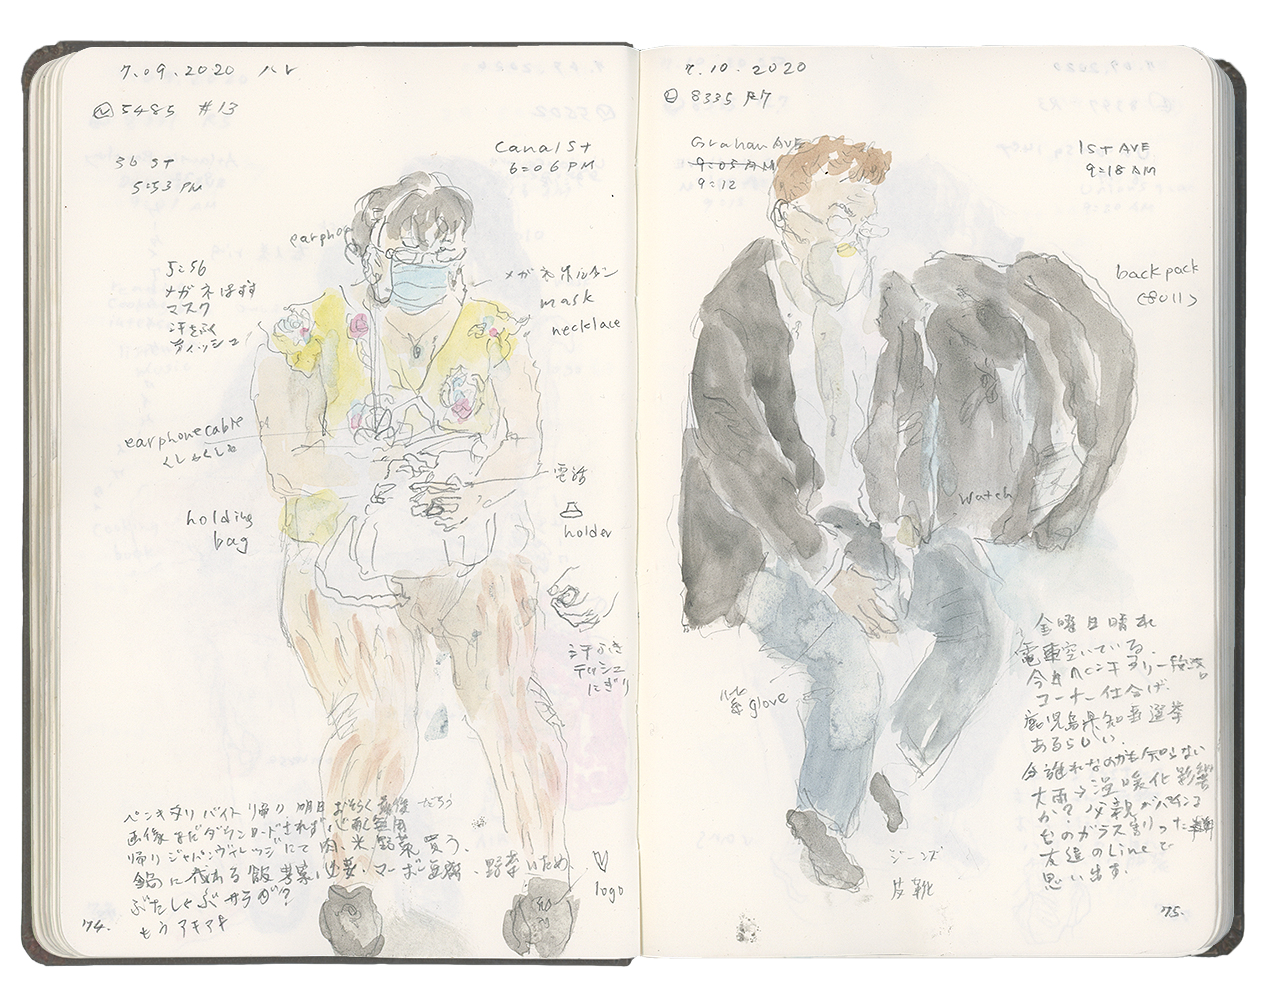 7.09.2020 ハレ
Ⓝ 5485 #13
36 ST
5:53 PM
Canal St
6:06 PM
earphone
5:56
メガネはずす
マスク
汗をふく
ティッシュ
メガネホルダー
mask
necklace
earphone cable
くしゃくしゃ
電話
holding
bag
holder
汗ふき
ティッシュ
にぎり
ペンキヌリ バイト 帰り. 明日 おそらく最後 だろう
画像まだダウンロードされず 心配無用
帰り ジャパンヴィレッジにて 肉、米、野菜 買う、
鍋に代わる飯 考案 必要. マーボー豆腐、野菜いため
ぶたしゃぶサラダ?
もうアキアキ
logo
74.
7.10.2020
Ⓛ 8335 R7
Graham AVE
9:05 AM
9:12
1st AVE
9:18 AM
backpack
watch
glove
ジーンズ
皮靴
金曜日晴れ
電車空いている.
今日 ペンキヌリ 一段落
コーナー仕上げ.
鹿児島県知事選挙
あるらしい.
今誰れなのかも知らない
大雨→温暖化影響
か? 父親が
台のガラス割った
友達のLineで
思い出す.
75.